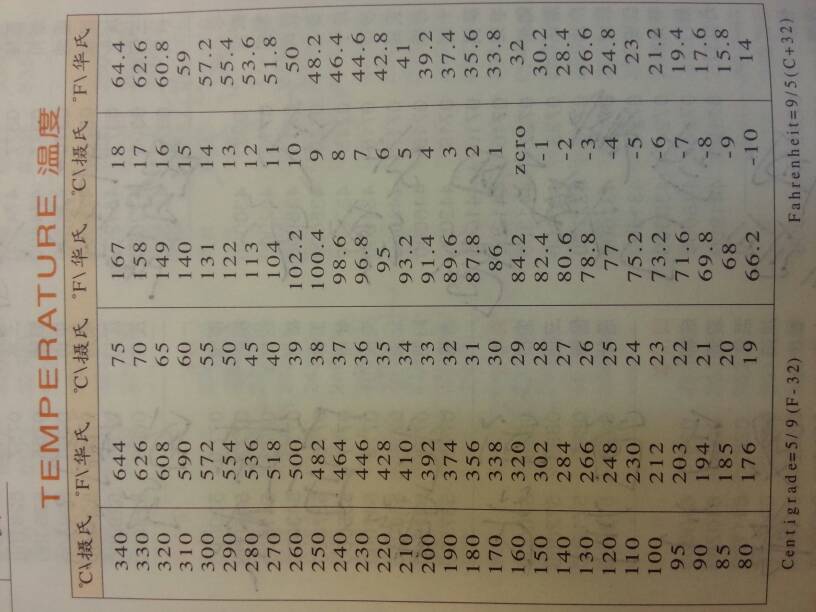 TEMPERATURE 温度
℃\摄氏 ℉\华氏 ℃\摄氏 ℉\华氏 ℃\摄氏 ℉\华氏
340 644 75 167 18 64.4
330 626 70 158 17 62.6
320 608 65 149 16 60.8
310 590 60 140 15 59
300 572 55 131 14 57.2
290 554 50 122 13 55.4
280 536 45 113 12 53.6
270 518 40 104 11 51.8
260 500 39 102.2 10 50
250 482 38 100.4 9 48.2
240 464 37 98.6 8 46.4
230 446 36 96.8 7 44.6
220 428 35 95 6 42.8
210 410 34 93.2 5 41
200 392 33 91.4 4 39.2
190 374 32 89.6 3 37.4
180 356 31 87.8 2 35.6
170 338 30 86 1 33.8
160 320 29 84.2 zcro 32
150 302 28 82.4 -1 30.2
140 284 27 80.6 -2 28.4
130 266 26 78.8 -3 26.6
120 248 25 77 -4 24.8
110 230 24 75.2 -5 23
100 212 23 73.2 -6 21.2
95 203 22 71.6 -7 19.4
90 194 21 69.8 -8 17.6
85 185 20 68 -9 15.8
80 176 19 66.2 -10 14
Centigrade=5/9(F-32) Fahrenheit=9/5(C+32)